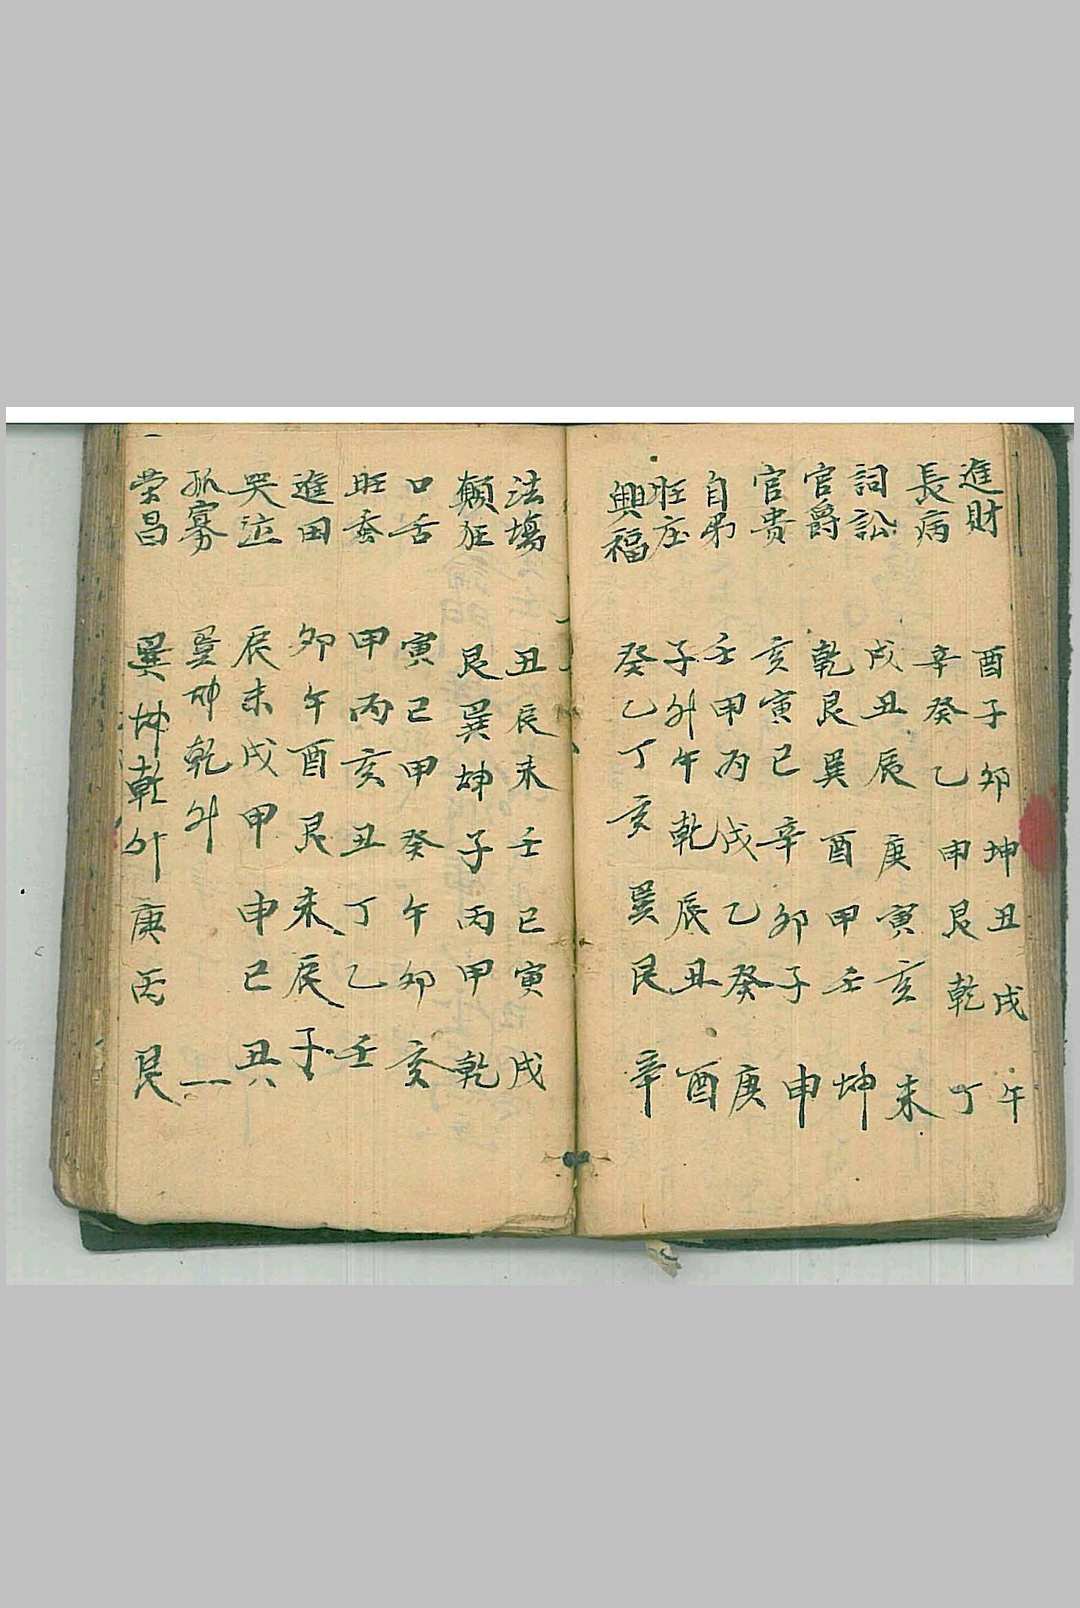 進財 酉子卯坤丑戌午
長病 辛癸乙申艮乾丁
詞訟 戌丑辰庚寅亥未
官爵 乾艮巽酉甲壬坤
官貴 亥寅巳辛卯子申
自吊 壬甲丙戌乙癸庚
旺庄 子午乾辰丑酉
興福 癸乙丁亥巽艮辛
法場 丑辰未壬巳寅戌
顛狂 艮巽坤子丙甲乾
口舌 寅巳甲癸午卯亥
旺蚕 甲丙亥丑丁乙壬
進田 卯午酉艮未辰子
哭泣 辰未戌甲申巳丑
孤寡 坤乾
荣昌 巽坤乾庚丙艮